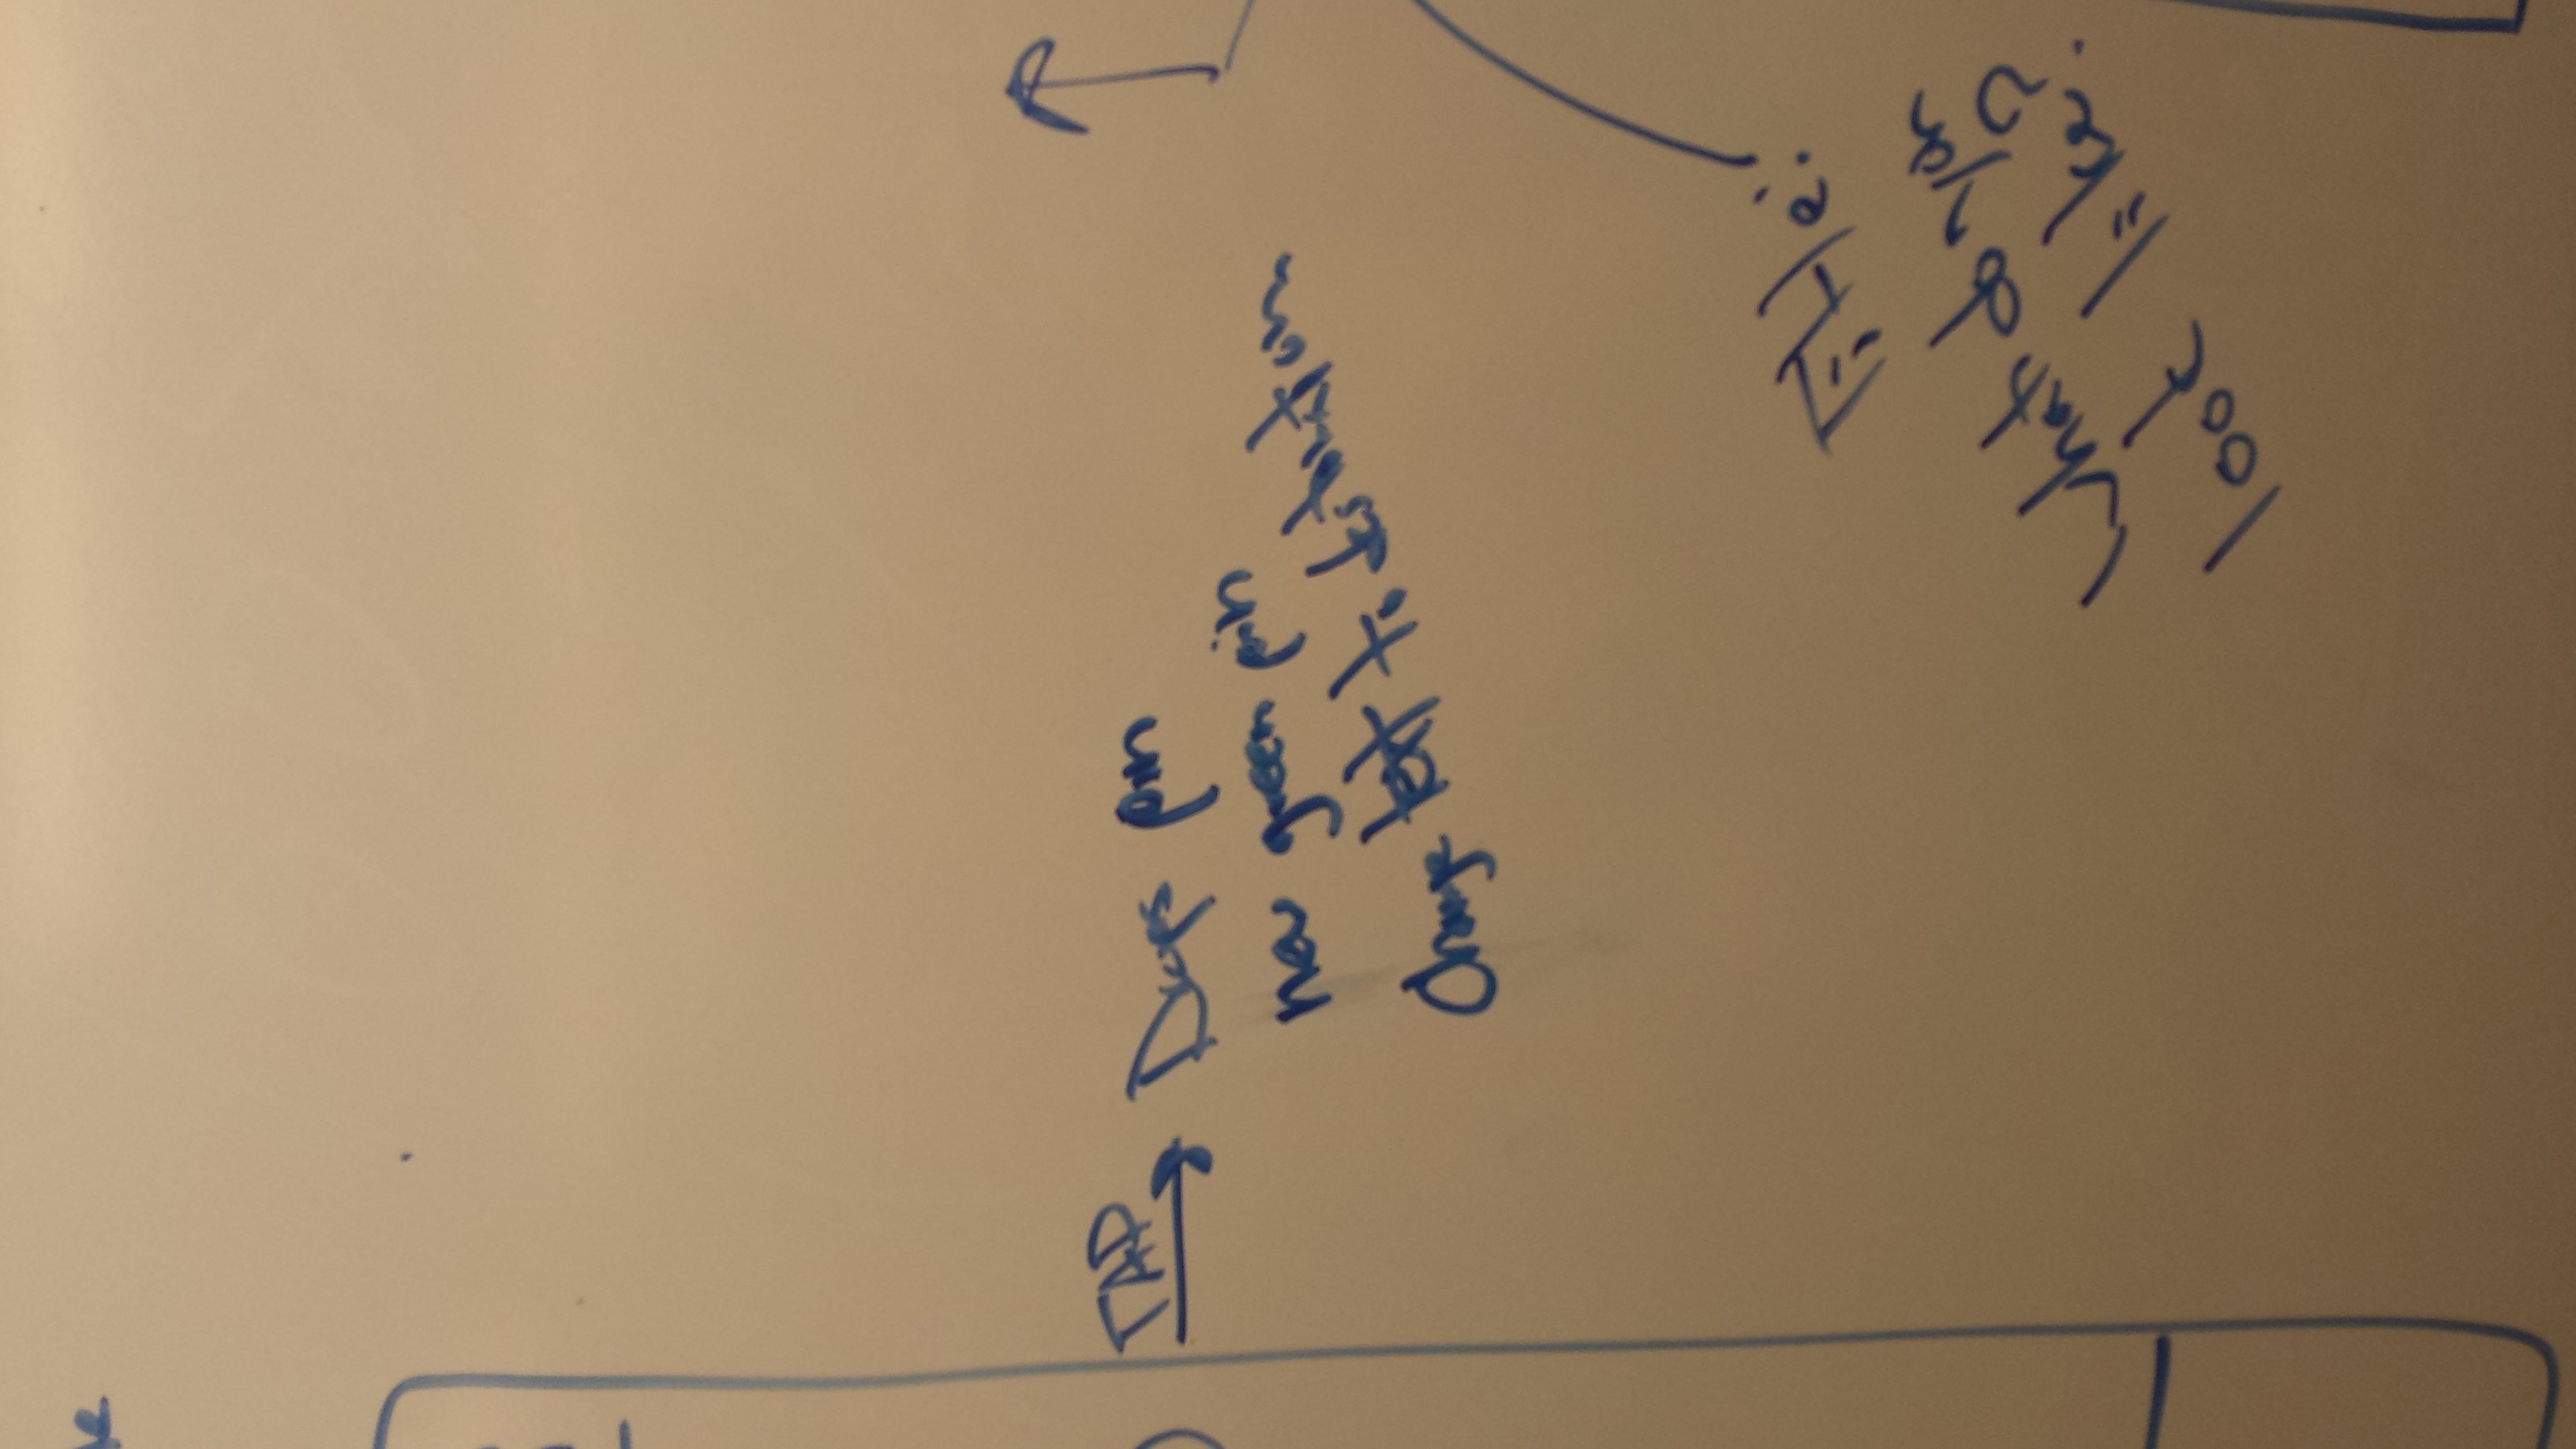 TAP
Drops pin
new green pin
Change text to destination
Title:
What do you
look like?